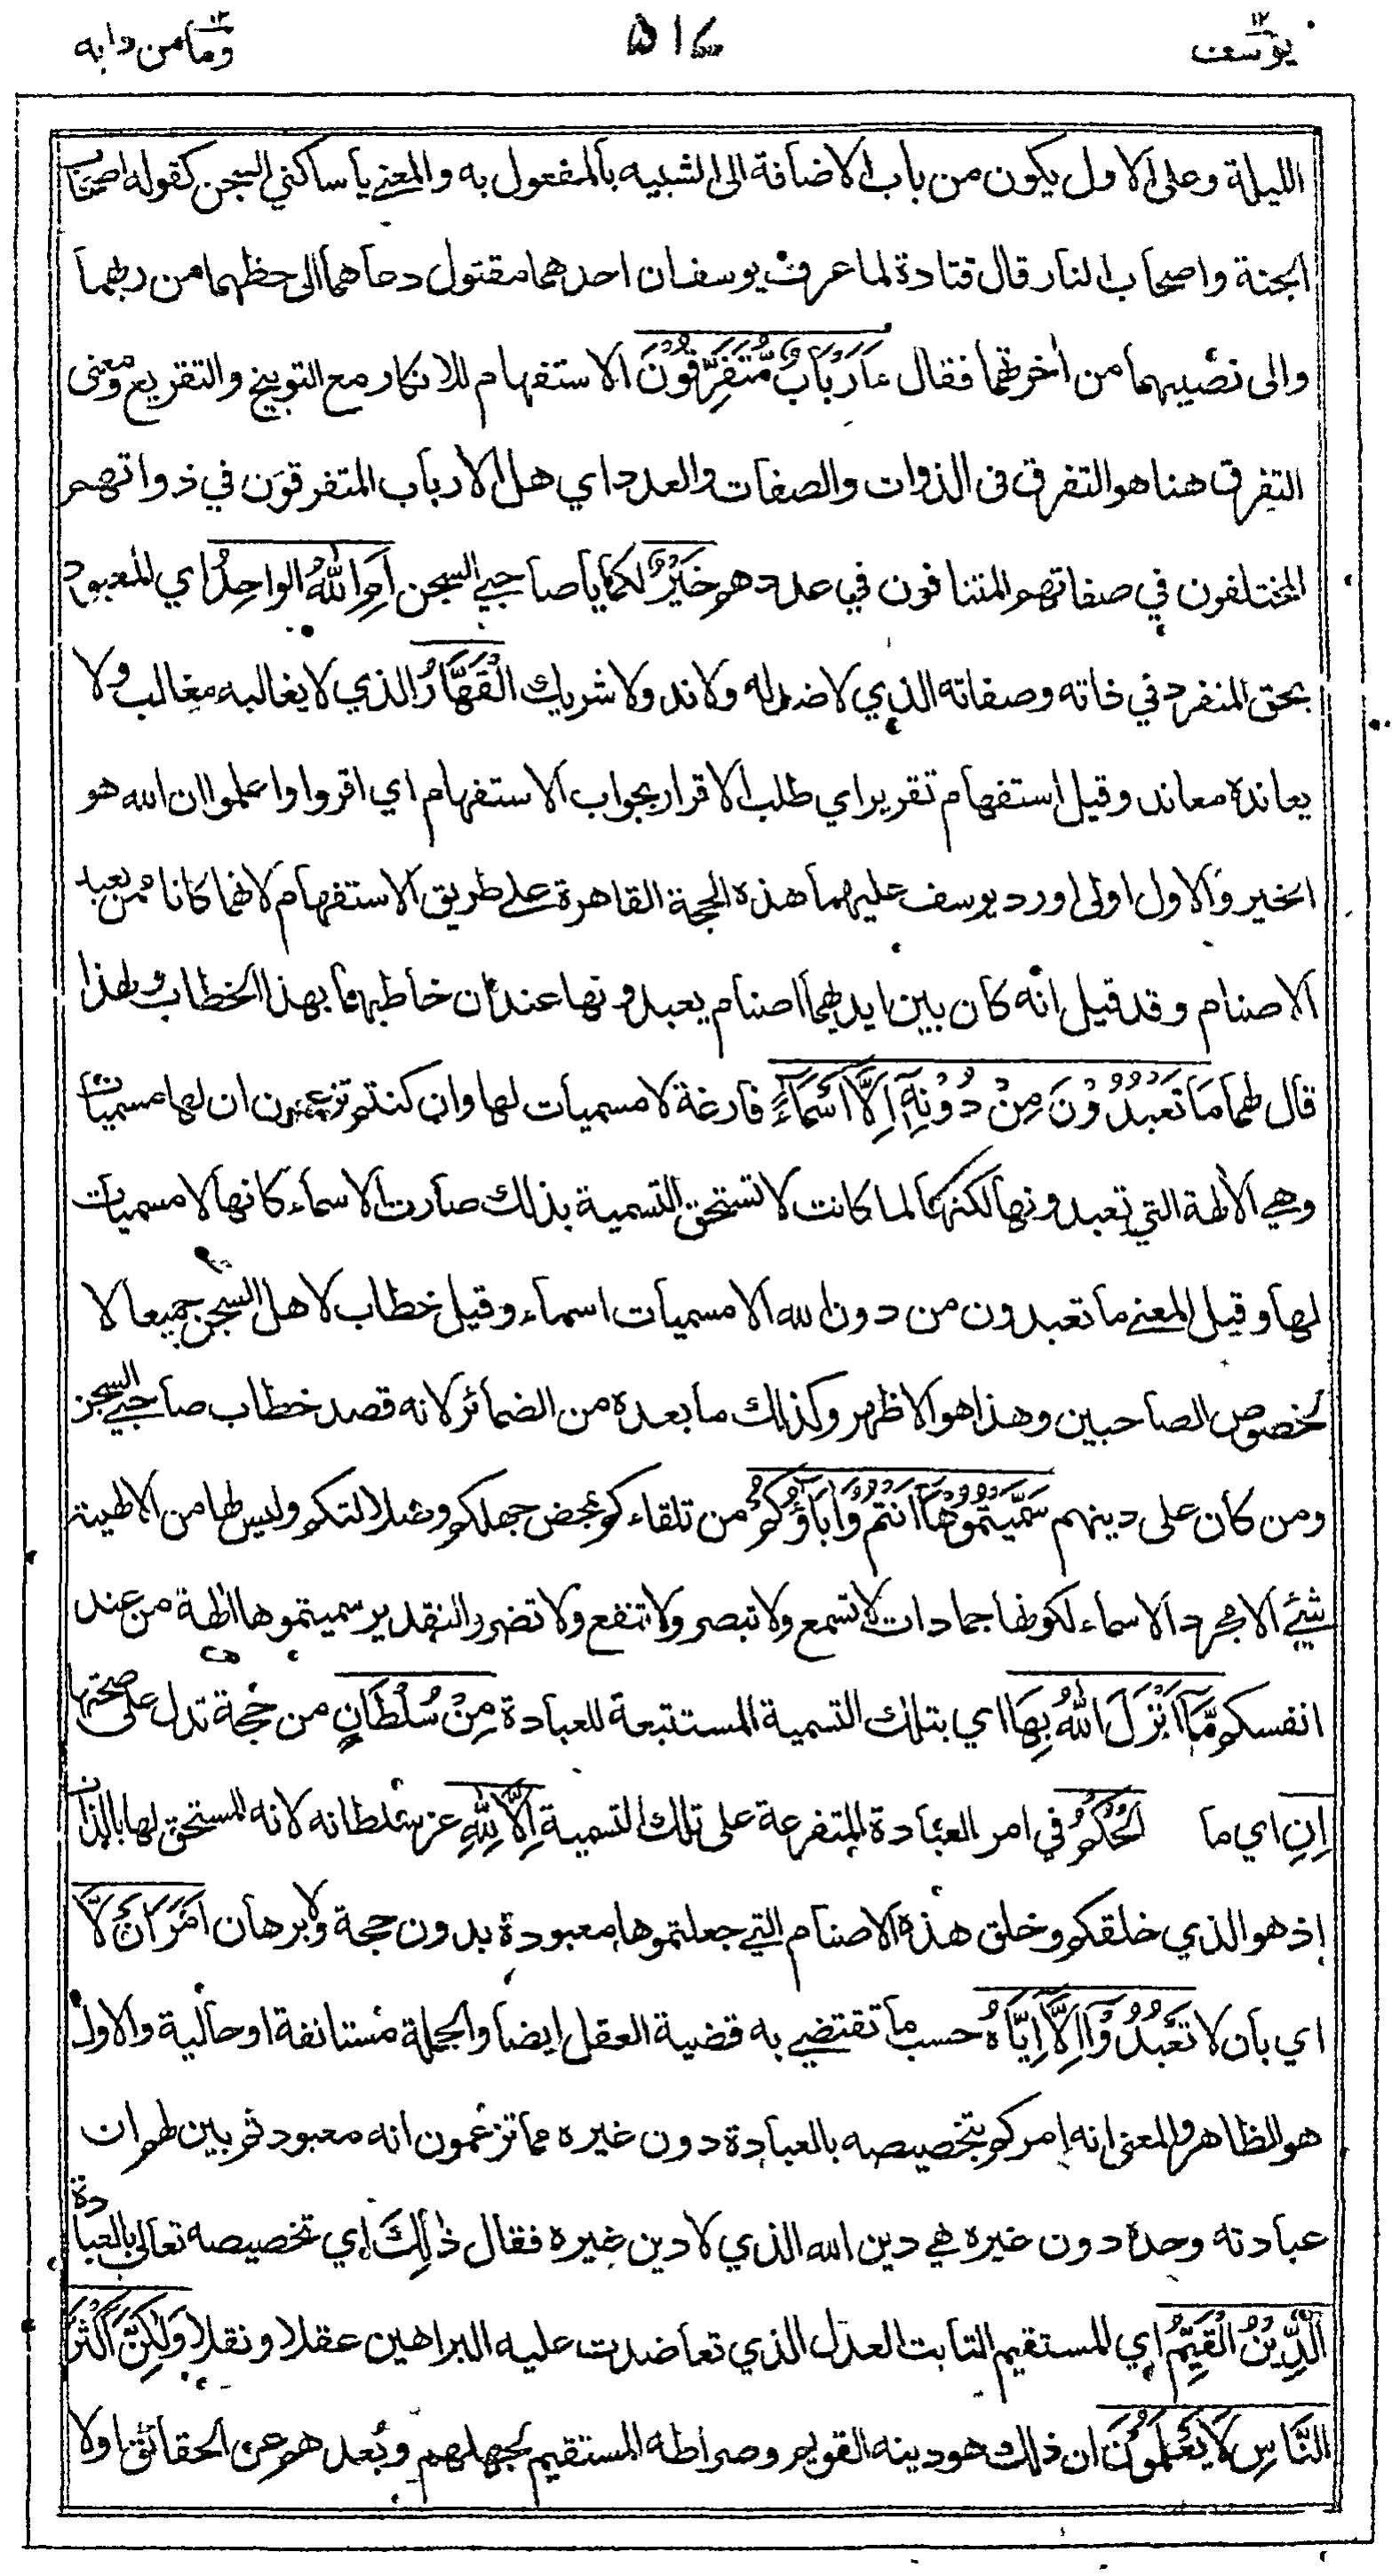 يوسف ١٢
٥١٧
وما من دابه ١٢
الليلة وعلى الاول يكون من باب الاضافة الى الشبيه بالمفعول به والمعنى يا ساكني السجن كقوله اصحاب
الجنة واصحاب النار قال قتادة لما عرف يوسف ان احدهما مقتول دعاهما الى حظهما من ربهما
والى نصيبهما من اخرتهما فقال ءَاَرْبَابٌ مُّتَفَرِّقُوْنَ الاستفهام للانكار مع التوبيخ والتقريع ومعنى
التفرق هنا هو التفرق في الذوات والصفات والعدد اي هل الارباب المتفرقون في ذواتهم
المختلفون في صفاتهم المتنافون في عددهم خَيْرٌ لكما يا صاحبي السجن اَمِ اللّٰهُ الواحِدُ اي المعبود
بحق المنفرد في ذاته وصفاته الذي لا ضد له ولا ند ولا شريك الْقَهَّارُ الذي لا يغالبه مغالب ولا
يعانده معاند وقيل استفهام تقرير اي طلب الاقرار بجواب الاستفهام اي اقروا واعلموا ان الله هو
الخير والاول اولى اورد يوسف عليهما هذه الحجة القاهرة على طريق الاستفهام لانهما كانا ممن يعبد
الاصنام وقد قيل انه كان بين ايديهما اصنام يعبدونها عند ان خاطبهما بهذا الخطاب ولهذا
قال لهما مَا تَعْبُدُوْنَ مِنْ دُوْنِهٖٓ اِلَّآ اَسْمَآءً فارغة لا مسميات لها وان كنتم تزعمون ان لها مسميات
وهي الالهة التي تعبدونها لكنها لما كانت لا تستحق التسمية بذلك صارت الاسماء كانها لا مسميات
لها وقيل المعنى ما تعبدون من دون الله الا مسميات اسماء وقيل خطاب لاهل السجن جميعا لا
لخصوص الصاحبين وهذا هو الاظهر وكذلك ما بعده من الضمائر لانه قصد خطاب صاحبي السجن
ومن كان على دينهم سَمَّيْتُمُوْهَآ اَنْتُمْ وَاٰبَآؤُكُمْ من تلقاءكم بمحض جهلكم وضلالتكم وليس لها من الالهية
شيئ الا مجرد الاسماء لكونها جمادات لا تسمع ولا تبصر ولا تنفع ولا تضر والتقدير سميتموها الهة من عند
انفسكم مَّآ اَنْزَلَ اللّٰهُ بِهَا اي بتلك التسمية المستتبعة للعبادة مِنْ سُلْطَانٍ من حجة تدل على صحتها
اِنِ اي ما الْحُكْمُ في امر العبادة المتفرعة على تلك التسمية اِلَّا لِلّٰهِ عز سلطانه لانه المستحق لها بالذات
إذ هو الذي خلقكم وخلق هذه الاصنام التي جعلتموها معبودة بدون حجة ولا برهان اَمَرَ اَنْ لَّا
اي بان لا تَعْبُدُوْٓا اِلَّآ اِيَّاهُ حسب ما تقتضي به قضية العقل ايضا والجملة مستانفة او حالية والاول
هو الظاهر والمعنى انه امركم بتخصيصه بالعبادة دون غيره مما تزعمون انه معبود ثم بين لهم ان
عبادته وحده دون غيره هي دين الله الذي لا دين غيره فقال ذٰلِكَ اي تخصيصه تعالى بالعبادة
الدِّيْنُ الْقَيِّمُ اي المستقيم الثابت العدل الذي تعاضدت عليه البراهين عقلا ونقلا وَلٰكِنَّ اَكْثَرَ
النَّاسِ لَا يَعْلَمُوْنَ ان ذلك هو دينه القويم وصراطه المستقيم لجهلهم وبُعدهم عن الحقائق اولا